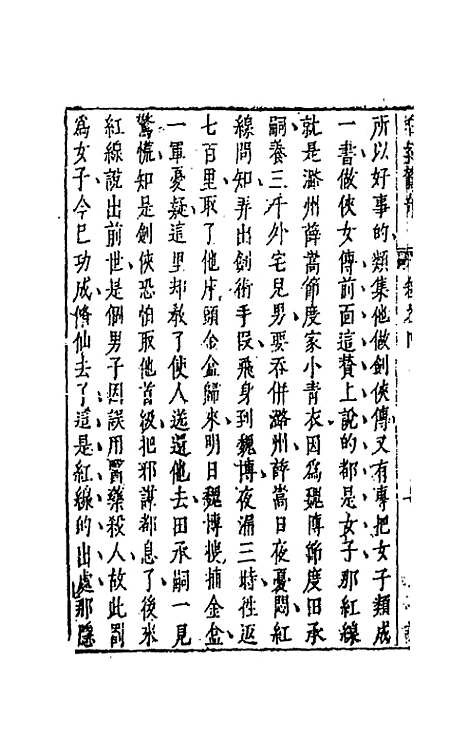 所以好事的類集他做劍俠傳又有專把女子類成
一書做俠女傳前面這贊上說的都是女子那紅線
就是潞州薛嵩節度家小青衣因為魏博節度田承
嗣養三千外宅兒男要吞併潞州薛嵩日夜憂悶紅
線問知弄出劍術手段飛身到魏博夜漏三時徃返
七百里取了他床頭金盒歸來明日魏博搜捕金盒
一軍憂疑這里却教了使人送還他去田承嗣一見
驚慌知是劍俠恐怕取他首級把邪謀都息了後來
紅線說出前世是個男子因誤用醫藥殺人故此罰
為女子今已功成修仙去了這是紅線的出處那隱